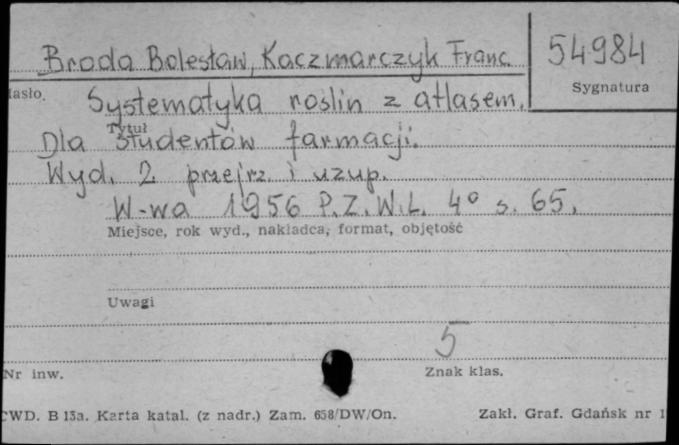 Broda Bolesław, Kaczmarczyk Franc.
54984
Hasło.
Sygnatura
Systematyka roślin z atlasem.
Tytuł
Dla studentów farmacji.
Wyd. 2 przejrz. i uzup.
W-wa 1956 P.Z.W.L. 4° s. 65.
Miejsce, rok wyd., nakładca, format, objętość
Uwagi
5
Nr inw.
Znak klas.
CWD. B 13a. Karta katal. (z nadr.) Zam. 658/DW/On.
Zakł. Graf. Gdańsk nr 1